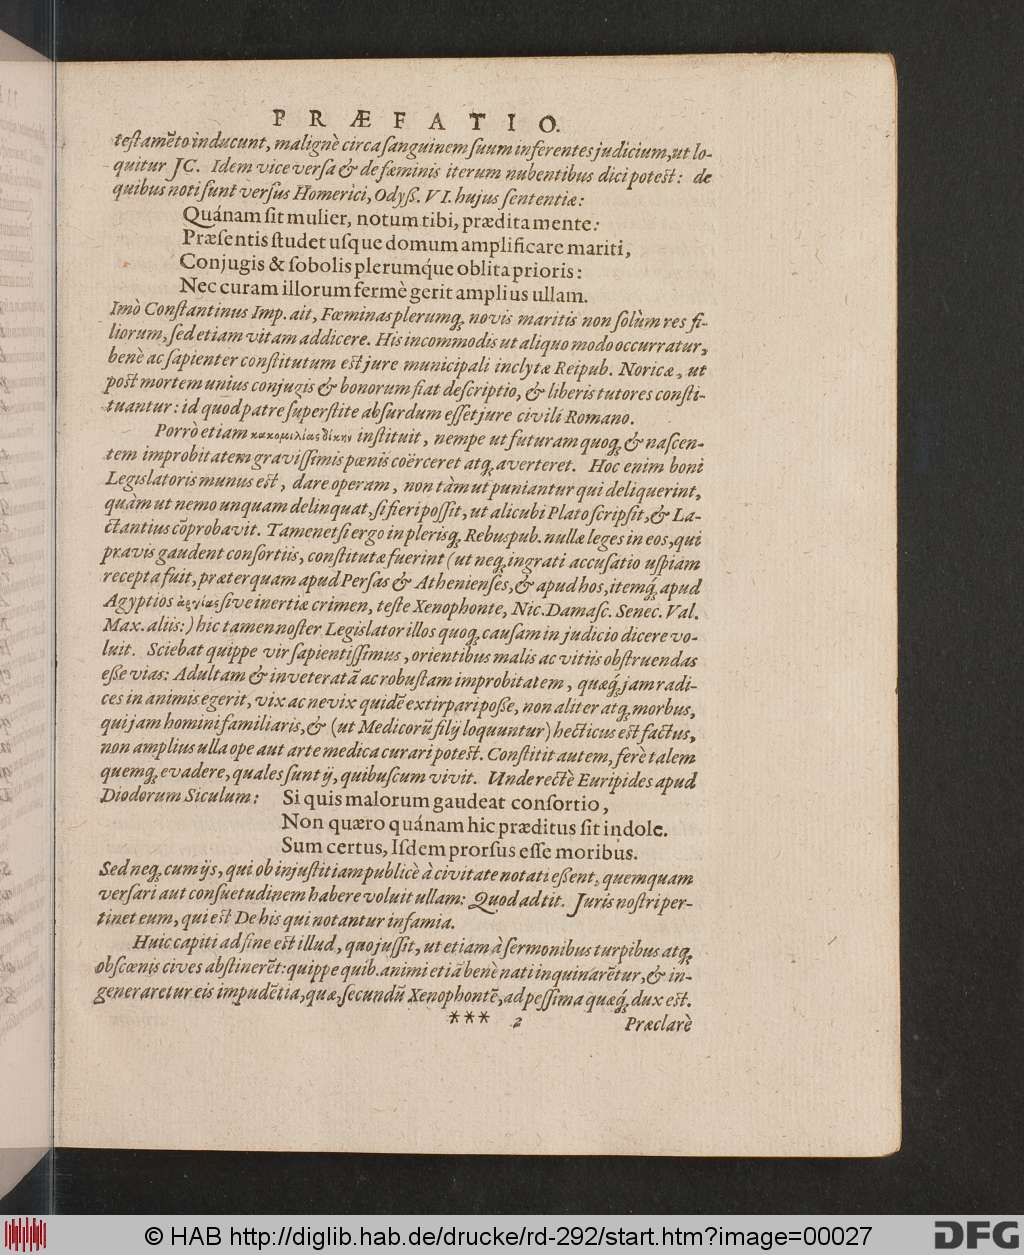 PRÆFATIO.
testamẽto inducunt, malignè circa sanguinem suum inferentes judicium, ut lo-
quitur JC. Idem vice versa & de fæminis iterum nubentibus dici potest: de
quibus noti sunt versus Homerici, Odyß. VI. hujus sententiæ:
Quánam sit mulier, notum tibi, prædita mente:
Præsentis studet usque domum amplificare mariti,
Conjugis & sobolis plerumq́ue oblita prioris:
Nec curam illorum fermè gerit amplius ullam.
Imò Constantinus Imp. ait, Fœminas plerumq; novis maritis non solùm res fi-
liorum, sed etiam vitam addicere. His incommodis ut aliquo modo occurratur,
benè ac sapienter constitutum est jure municipali inclytæ Reipub. Noricæ, ut
post mortem unius conjugis & bonorum fiat descriptio, & liberis tutores consti-
tuantur: id quod patre superstite absurdum esset jure civili Romano.
Porrò etiam κακομιλίας δίκην instituit, nempe ut futuram quoq; & nascen-
tem improbitatem gravissimis pœnis coërceret atq; averteret. Hoc enim boni
Legislatoris munus est, dare operam, non tàm ut puniantur qui deliquerint,
quàm ut nemo unquam delinquat, si fieri possit, ut alicubi Plato scripsit, & La-
ctantius cõprobavit. Tametsi ergo in plerisq; Rebuspub. nullæ leges in eos, qui
pravis gaudent consortiis, constitutæ fuerint (ut neq; ingrati accusatio uspiam
recepta fuit, præterquam apud Persas & Athenienses, & apud hos, itemq́; apud
Agyptios ἀργίας sive inertiæ crimen, teste Xenophonte, Nic. Damasc. Senec. Val.
Max. aliis:) hic tamen noster Legislator illos quoq; causam in judicio dicere vo-
luit. Sciebat quippe vir sapientissimus, orientibus malis ac vitiis obstruendas
eße vias: Adultam & inveteratã ac robustam improbitatem, quæq́; jam radi-
ces in animis egerit, vix ac ne vix quidẽ extirpari poße, non aliter atq; morbus,
qui jam homini familiaris, & (ut Medicorũ filij loquuntur) hecticus est factus,
non amplius ulla ope aut arte medica curari potest. Constitit autem, ferè talem
quemq; evadere, quales sunt ij, quibuscum vivit. Unde rectè Euripides apud
Diodorum Siculum: Si quis malorum gaudeat consortio,
Non quæro quánam hic præditus sit indole.
Sum certus, Isdem prorsus esse moribus.
Sed neq; cum ijs, qui ob injustitiam publicè à civitate notati eßent, quemquam
versari aut consuetudinem habere voluit ullam: Quod ad tit. Juris nostri per-
tinet eum, qui est De his qui notantur infamia.
Huic capiti adfine est illud, quo jussit, ut etiam à sermonibus turpibus atq;
obscœnis cives abstinerẽt: quippe quib. animi etiã benè nati inquinarẽtur, & in-
generaretur eis impudẽtia, quæ, secundũ Xenophontẽ, ad pessima quæq́; dux est.
*** 2 Præclarè
© HAB http://diglib.hab.de/drucke/rd-292/start.htm?image=00027 DFG